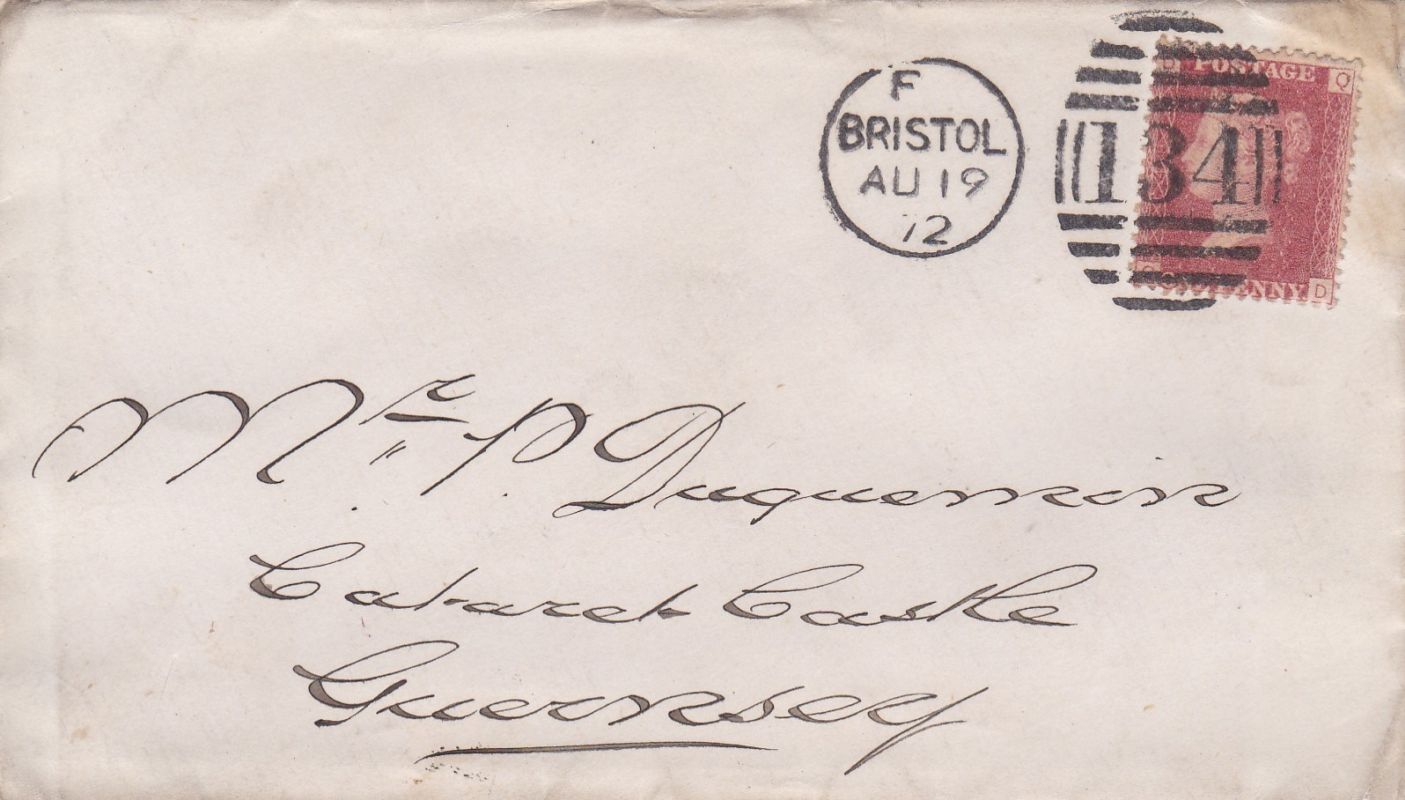 F
BRISTOL
AU 19
72
134
D POSTAGE Q
Q ONE PENNY D
Mr P. Duquemin
Castle
Guernsey